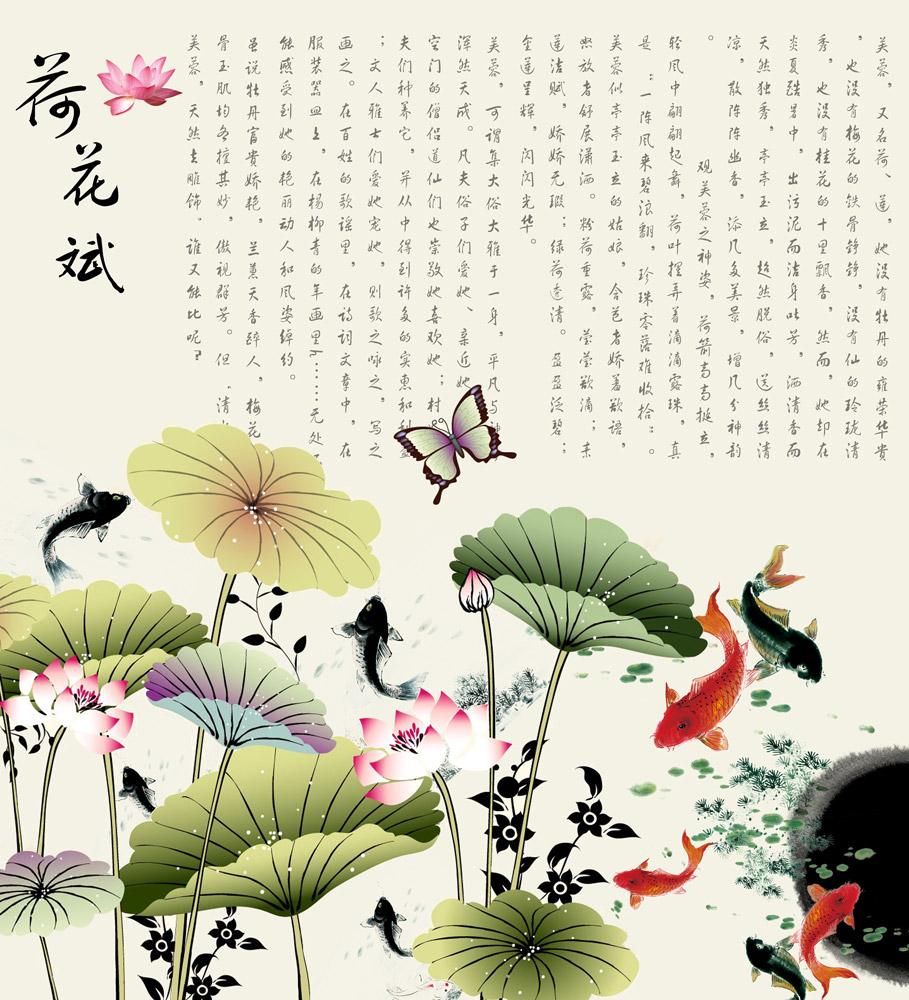 荷花斌
芙蓉，又名荷、莲，她没有牡丹的雍荣华贵
，也没有梅花的铁骨铮铮，没有仙的玲珑清
秀，也没有桂花的十里飘香，然而，她却在
炎夏酷暑中，出污泥而洁身吐芳，洒清香而
天然独秀，亭亭玉立，超然脱俗，送丝丝清
凉，散阵阵幽香，添几多美景，增几分神韵
。　　　　　观芙蓉之神姿，荷箭高高挺立，
轻风中翩翩起舞，荷叶摆弄着滴滴露珠，真
是：一阵风来碧浪翻，珍珠零落难收拾：。
芙蓉似亭亭玉立的姑娘，含苞者娇羞欲语，
怒放者舒展潇洒。粉荷垂露，莹莹欲滴；束
莲洁赋，娇娇无瑕；绿荷透清。盈盈泛碧；
金莲呈辉，闪闪光华。
芙蓉，可谓集大俗大雅于一身，平凡与神
浑然天成。凡夫俗子们爱她、亲近她
空门的僧侣道仙们也崇敬她喜欢她；村
夫们种养它，并从中得到许多的实惠和
；文人雅士们爱她宠她，则歌之咏之，写之
画之。在百姓的歌谣里，在诗词文章中，在
服装器皿上，在杨柳青的年画里……无处
能感受到她的艳丽动人和风姿绰约。
虽说牡丹富贵娇艳，兰蕙天香醉人，梅花
骨玉肌均各擅其妙，傲视群芳。但"清
芙蓉，天然去雕饰。谁又能比呢？